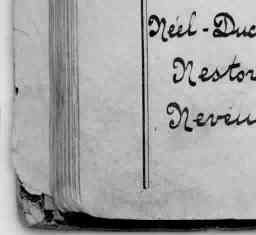 Néel-Duc
Nestor
Neveu